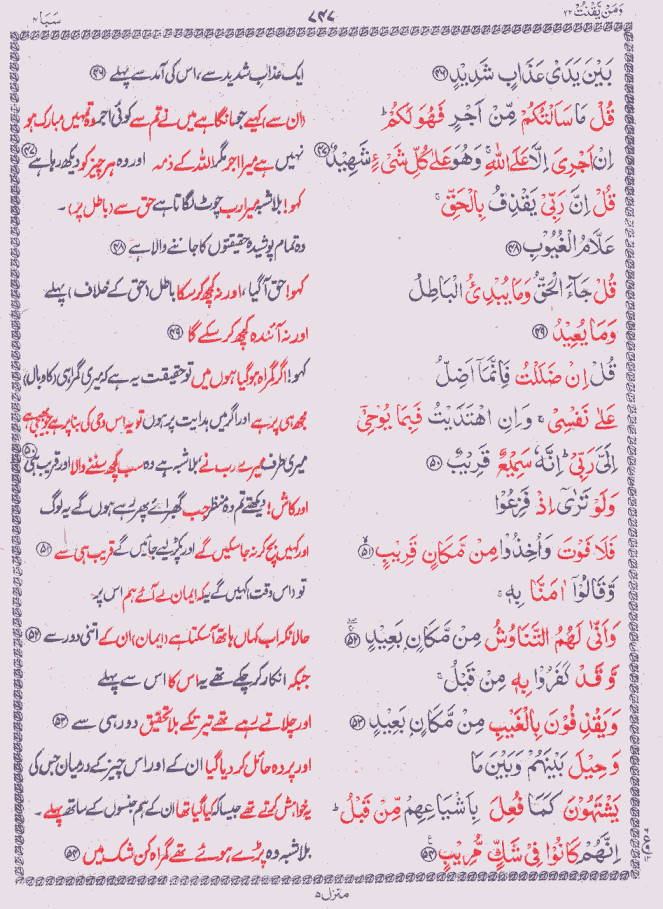 وَمَنْ يَّقْنُتْ ۲۲ ۷۴۷ سَبَا ۳۴
بَيْنَ يَدَىْ عَذَابٍ شَدِيْدٍ ﴿۴۶﴾ ایک عذابِ شدید سے، اس کی آمد سے پہلے ﴿۴۶﴾
قُلْ مَا سَاَلْتُكُمْ مِّنْ اَجْرٍ فَهُوَ لَكُمْ ؕ (ان سے) کہیے جو مانگا ہے میں نے تم سے کوئی اجر وہ تمہیں مبارک ہو
اِنْ اَجْرِىَ اِلَّا عَلَى اللّٰهِ ۚ وَهُوَ عَلٰى كُلِّ شَىْءٍ شَهِيْدٌ ﴿۴۷﴾ نہیں ہے میرا اجر مگر اللہ کے ذمہ اور وہ ہر چیز کو دیکھ رہا ہے ﴿۴۷﴾
قُلْ اِنَّ رَبِّىْ يَقْذِفُ بِالْحَقِّ ۚ کہو! بلاشبہ میرا رب چوٹ لگاتا ہے حق سے (باطل پر)۔
عَلَّامُ الْغُيُوْبِ ﴿۴۸﴾ وہ تمام پوشیدہ حقیقتوں کا جاننے والا ہے ﴿۴۸﴾
قُلْ جَآءَ الْحَقُّ وَمَا يُبْدِئُ الْبَاطِلُ کہو! حق آگیا، اور نہ کچھ کرسکا باطل (حق کے خلاف) پہلے
وَمَا يُعِيْدُ ﴿۴۹﴾ اور نہ آئندہ کچھ کرسکے گا ﴿۴۹﴾
قُلْ اِنْ ضَلَلْتُ فَاِنَّمَاۤ اَضِلُّ کہو! اگر گمراہ ہوگیا ہوں میں تو حقیقت یہ ہے کہ میری گمراہی (کا وبال)
عَلٰى نَفْسِىْ ۚ وَاِنِ اهْتَدَيْتُ فَبِمَا يُوْحِىْۤ مجھ ہی پر ہے اور اگر میں ہدایت پر ہوں تو یہ اس وحی کی بنا پر ہے جو بھیجی ہے
اِلَىَّ رَبِّىْ ؕ اِنَّهٗ سَمِيْعٌ قَرِيْبٌ ﴿۵۰﴾ میری طرف میرے رب نے بلاشبہ ہے وہ سب کچھ سننے والا اور قریب ہی ﴿۵۰﴾
وَلَوْ تَرٰٓى اِذْ فَزِعُوْا اور کاش! دیکھتے تم وہ منظر جب گھبرائے پھر رہے ہوں گے یہ لوگ
فَلَا فَوْتَ وَاُخِذُوْا مِنْ مَّكَانٍ قَرِيْبٍ ﴿۵۱﴾ اور کہیں بچ کر نہ جاسکیں گے اور پکڑ لیے جائیں گے قریب ہی سے ﴿۵۱﴾
وَّقَالُوْۤا اٰمَنَّا بِهٖ ۚ تو (اس وقت) کہیں گے یہ کہ ایمان لے آئے ہم اس پر
وَاَنّٰى لَهُمُ التَّنَاوُشُ مِنْ مَّكَانٍۭ بَعِيْدٍ ﴿۵۲﴾ حالانکہ اب کہاں ہاتھ آسکتا ہے (ایمان) ان کے اتنی دور سے ﴿۵۲﴾
وَّقَدْ كَفَرُوْا بِهٖ مِنْ قَبْلُ ۚ جبکہ انکار کرچکے تھے یہ اس کا اس سے پہلے
وَيَقْذِفُوْنَ بِالْغَيْبِ مِنْ مَّكَانٍۭ بَعِيْدٍ ﴿۵۳﴾ اور چلاتے رہے تھے تیر تکے بلا تحقیق دور ہی سے ﴿۵۳﴾
وَحِيْلَ بَيْنَهُمْ وَبَيْنَ مَا اور پردہ حائل کر دیا گیا ان کے اور اس چیز کے درمیان جس کی
يَشْتَهُوْنَ كَمَا فُعِلَ بِاَشْيَاعِهِمْ مِّنْ قَبْلُ ؕ یہ خواہش کرتے تھے جیسا کہ کیا گیا تھا ان کے ہم جنسوں کے ساتھ پہلے۔
اِنَّهُمْ كَانُوْا فِىْ شَكٍّ مُّرِيْبٍ ﴿۵۴﴾ بلاشبہ وہ پڑے ہوئے تھے گمراہ کن شک میں ﴿۵۴﴾
منزل ۵